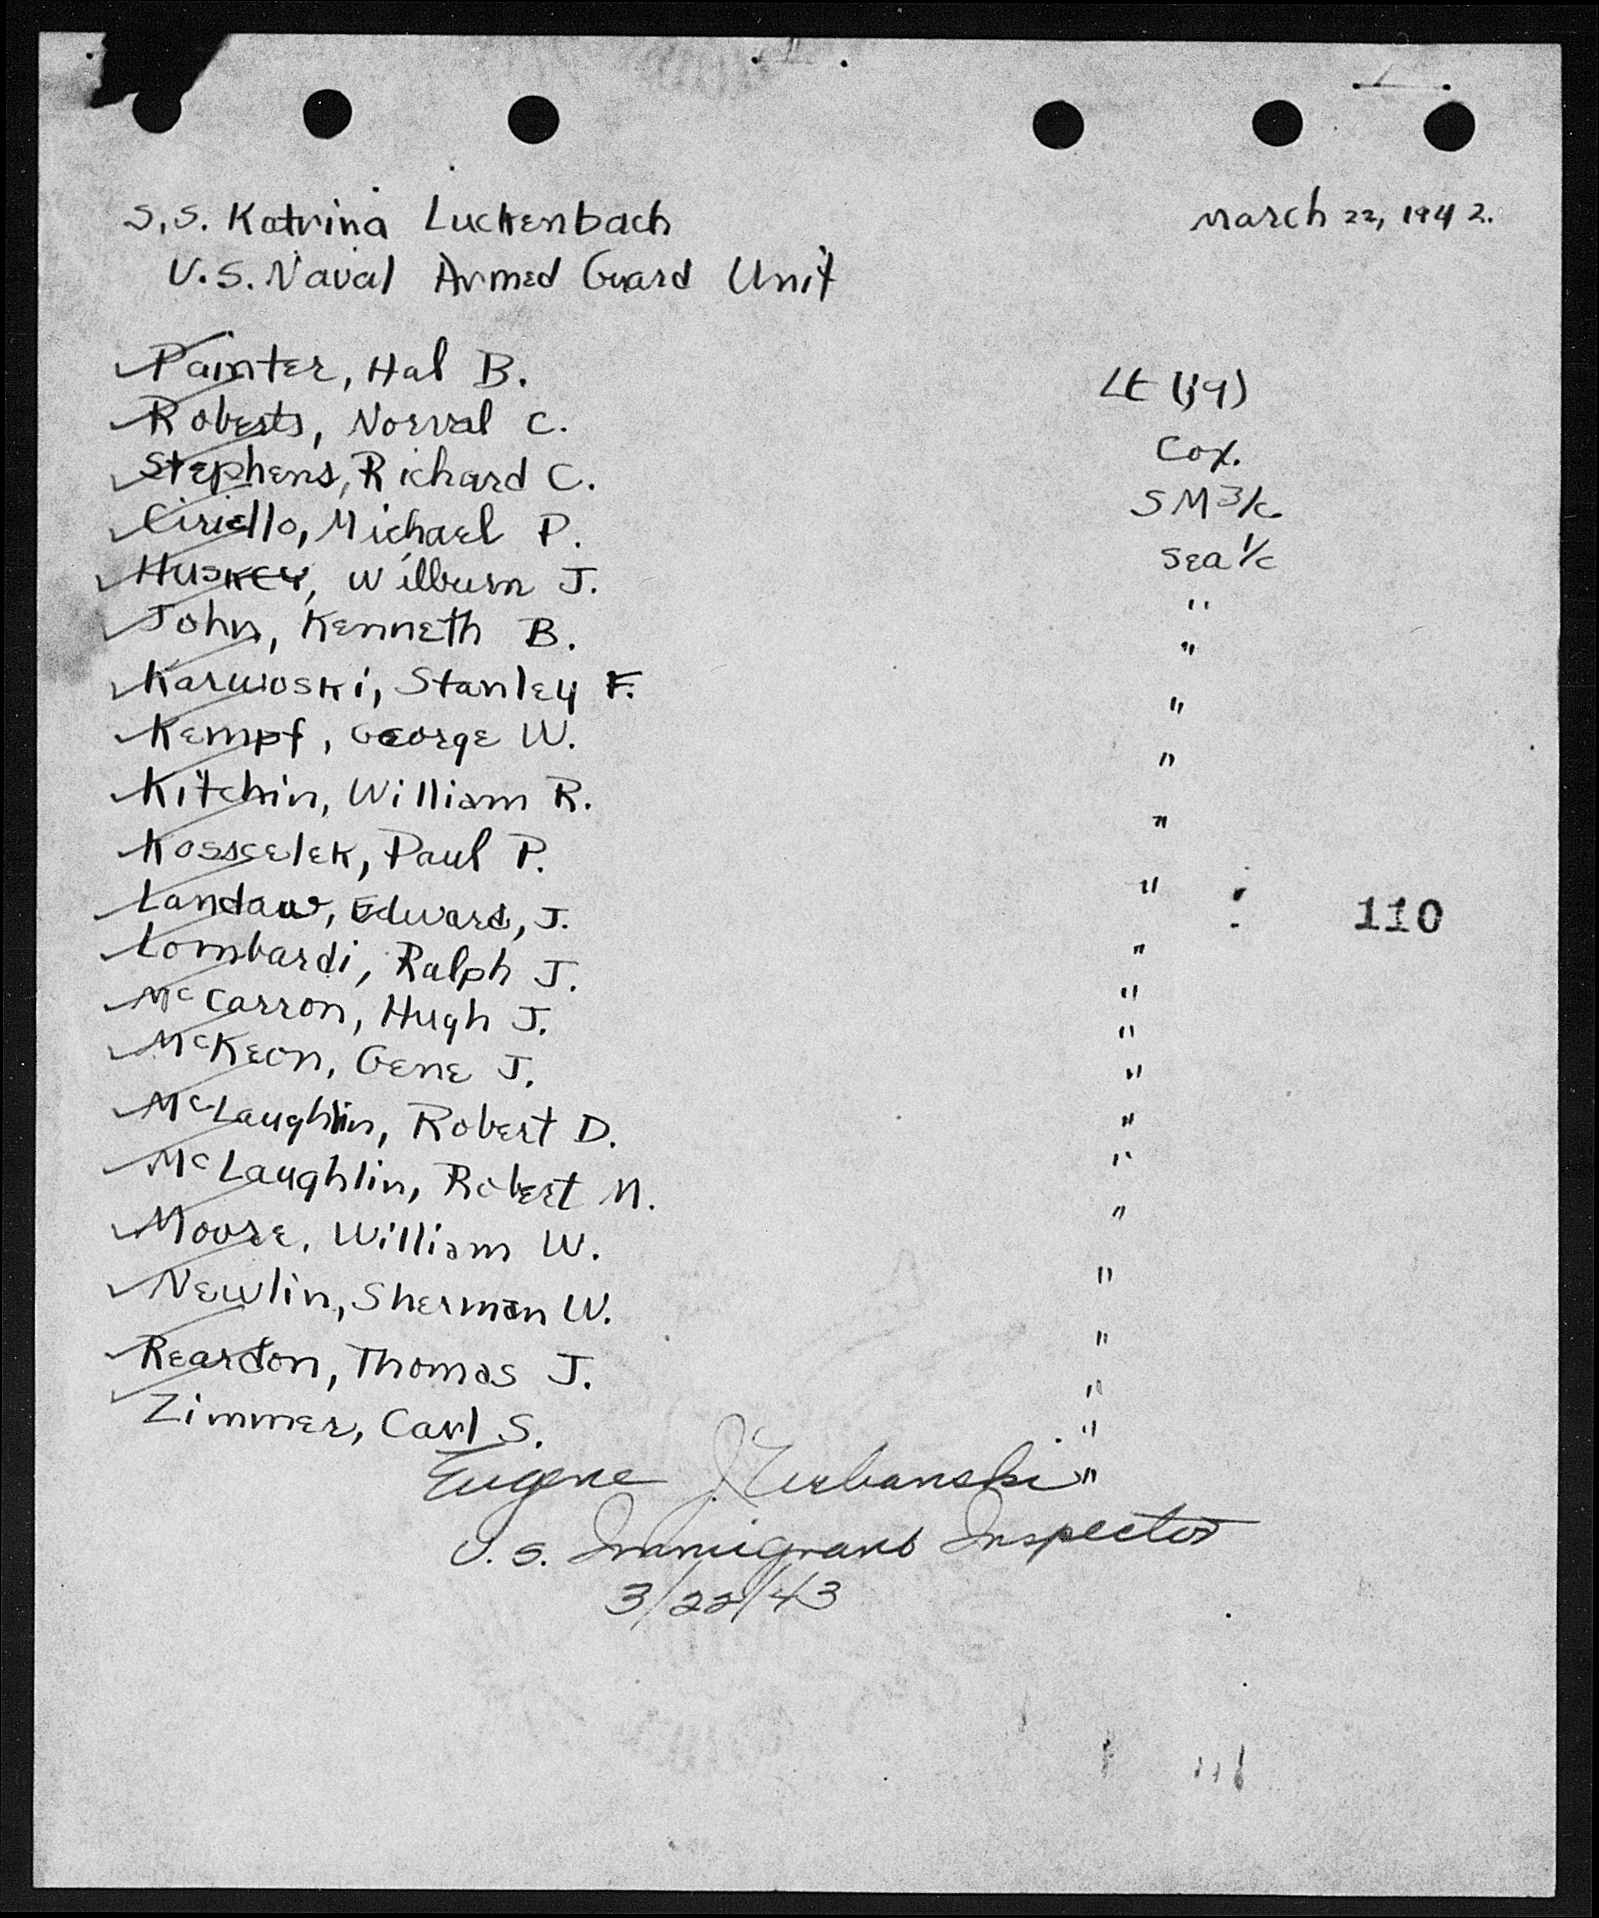 S.S. Katrina Luckenbach March 22, 1942.
U.S. Naval Armed Guard Unit
Painter, Hal B. Lt (jg)
Roberts, Norval C. Cox.
Stephens, Richard C. SM 3/c
Ciriello, Michael P. Sea 1/c
Huskey, Wilburn J. "
John, Kenneth B. "
Karwoski, Stanley F. "
Kempf, George W. "
Kitchin, William R. "
Kosscelek, Paul P. "
110
Landau, Edward, J. "
Lombardi, Ralph J. "
McCarron, Hugh J. "
McKeon, Gene J. "
McLaughlin, Robert D. "
McLaughlin, Robert M. "
Moore, William W. "
Newlin, Sherman W. "
Reardon, Thomas J. "
Zimmer, Carl S. "
Eugene J. Urbanski "
U.S. Immigrant Inspector
3/22/43